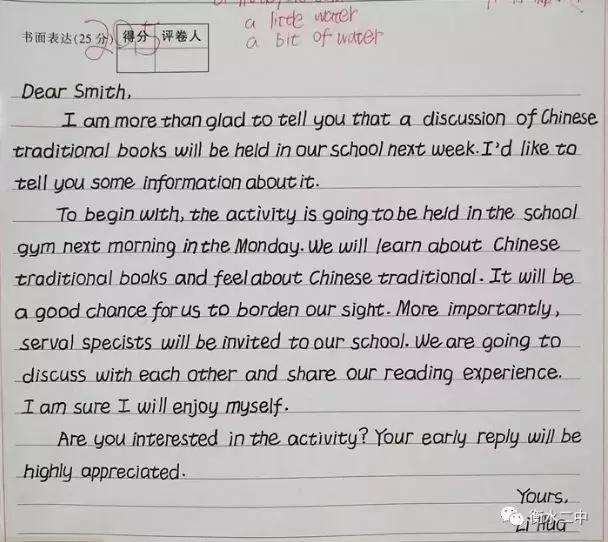 a little water
书面表达(25分) 得分 评卷人
a bit of water
Dear Smith,
I am more than glad to tell you that a discussion of Chinese
traditional books will be held in our school next week. I'd like to
tell you some information about it.
To begin with, the activity is going to be held in the school
gym next morning in the Monday. We will learn about Chinese
traditional books and feel about Chinese traditional. It will be
a good chance for us to borden our sight. More importantly,
serval specists will be invited to our school. We are going to
discuss with each other and share our reading experience.
I am sure I will enjoy myself.
Are you interested in the activity? Your early reply will be
highly appreciated.
Yours,
Li Hua
衡水二中